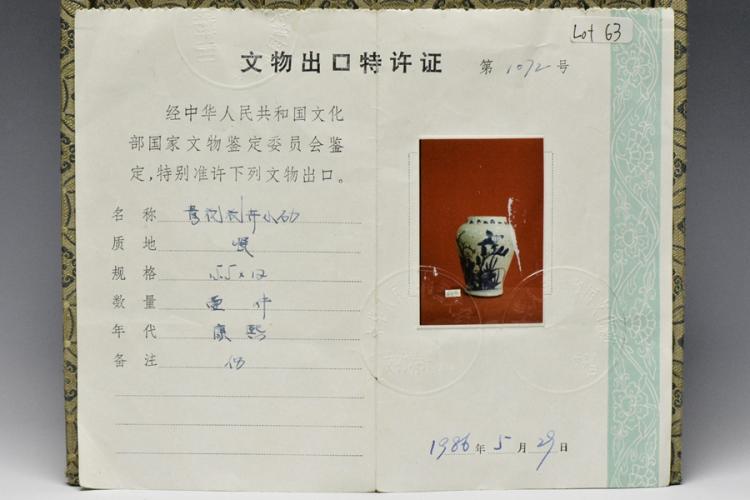 Lot 63
文物出口特许证 第1072号
经中华人民共和国文化
部国家文物鉴定委员会鉴
定,特别准许下列文物出口。
名 称
质 地
规 格
数 量 件
年 代 康熙
备 注
1986年5月29日